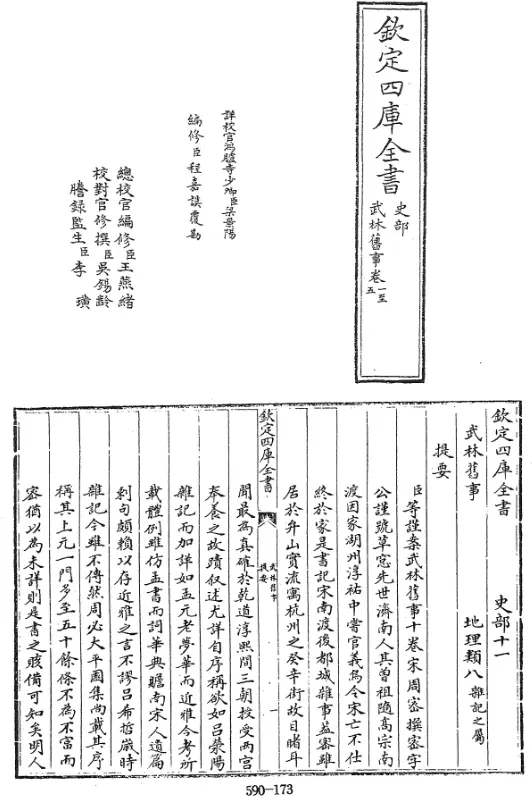 欽定四庫全書
史部
武林舊事卷一至五
詳校官鴻臚寺少卿臣梁景陽
編修臣程嘉謨覆勘
總校官編修臣王燕緒
校對官修撰臣吳錫齡
謄錄監生臣李璜
欽定四庫全書 史部十一
武林舊事 地理類八雜記之屬
提要
臣等謹案武林舊事十卷宋周密撰密字
公謹號草窓先世濟南人其曾祖隨高宗南
渡因家湖州淳祐中嘗官義烏令宋亡不仕
終於家是書記宋南渡後都城雜事葢密雖
居於弁山實流寓杭州之癸辛街故目睹耳
欽定四庫全書 武林舊事 提要 一
聞最為真確於乾道淳熙間三朝授受兩宮
奉養之故蹟叙述尤詳自序稱欲如呂滎陽
雜記而加詳如孟元老夢華而近雅今考所
載體例雖仿孟書而詞華典贍南宋人遺篇
剩句頗賴以存近雅之言不謬呂希哲歲時
雜記今雖不傳然周必大平園集尚載其序
稱其上元一門多至五十餘條不為不富而
密猶以為未詳則是書之賅備可知矣明人
590-173